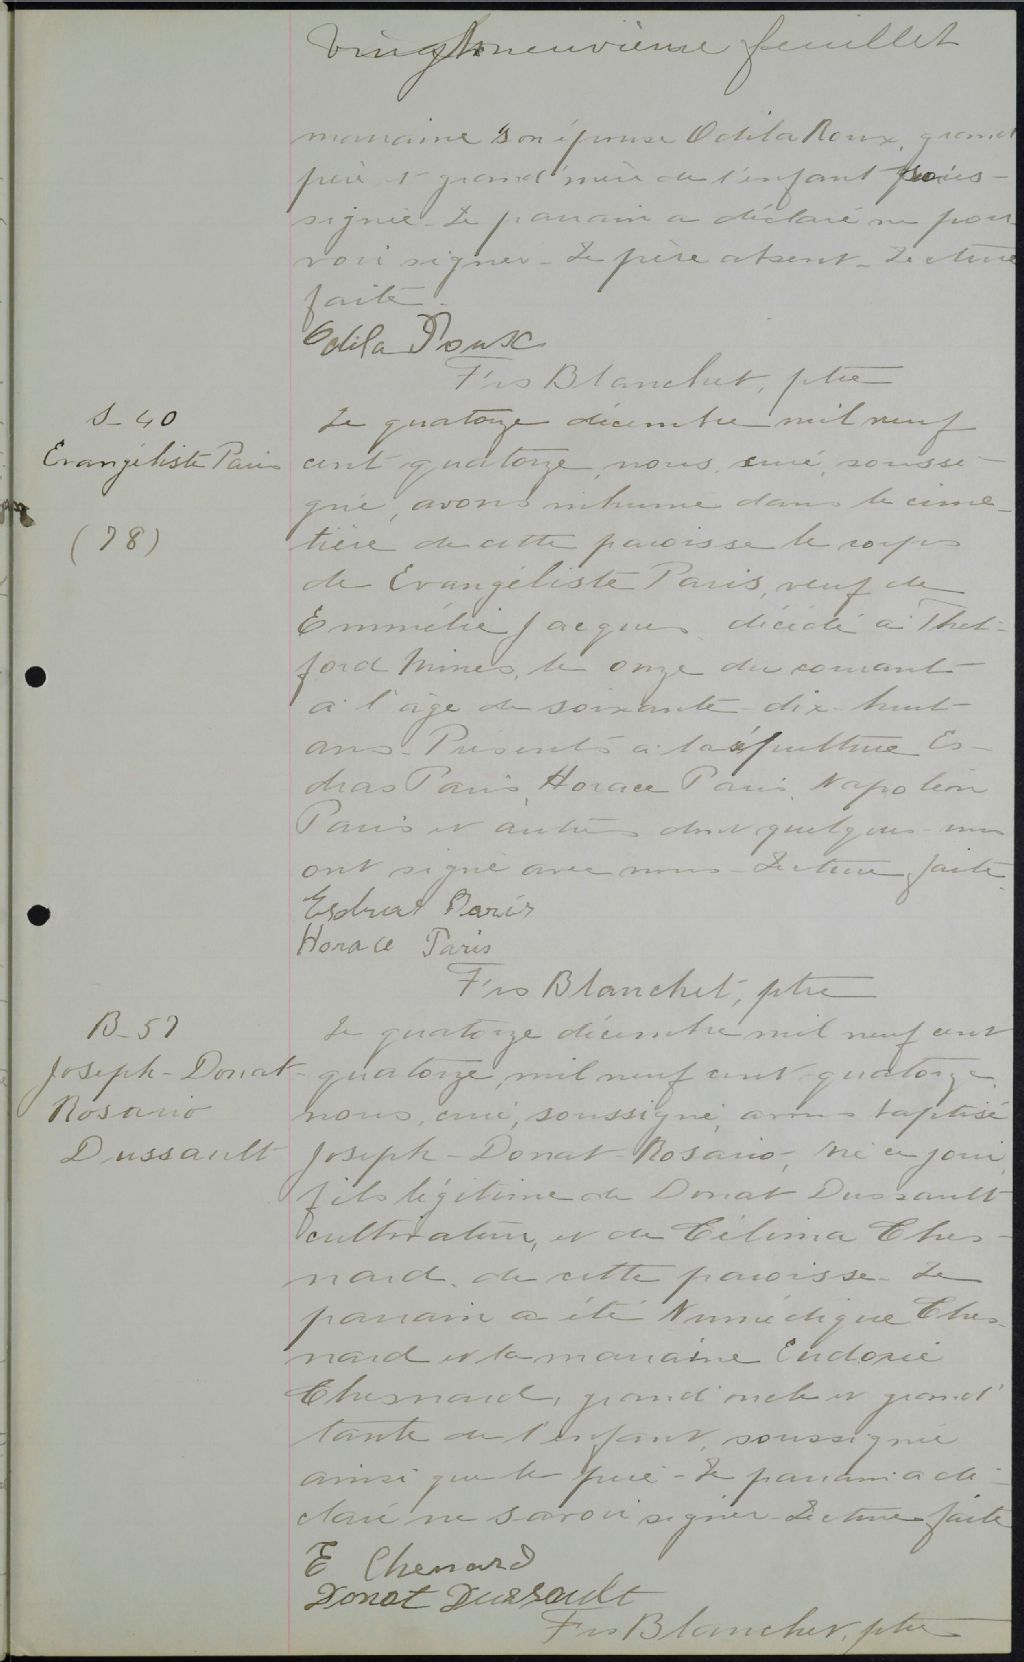 Vingt-neuvième feuillet
marraine son épouse Odila Roux, grand
père et grand'mère de l'enfant sous-
signée. Le parrain a déclaré ne pou-
voir signer. Le père absent. Lecture
faite.
Odila Roux
Frs Blanchet, ptre
S-40
Evangéliste Paris
(78)
Le quatorze décembre mil neuf
cent quatorze, nous, curé, soussi-
gné, avons inhumé dans le cime-
tière de cette paroisse le corps
de Evangéliste Paris, veuf de
Emmélie Jacques décédé à Thet-
ford Mines, le onze du courant
à l'âge de soixante-dix-huit
ans. Présents à la sépulture Es-
dras Paris, Horace Paris, Napoléon
Paris et autres dont quelques-uns
ont signé avec nous. Lecture faite.
Esdras Paris
Horace Paris
Frs Blanchet, ptre
B-57
Joseph-Donat-
Rosario
Dussault
Le quatorze décembre mil neuf cent
quatorze, mil neuf cent quatorze,
nous, curé, soussigné, avons baptisé
Joseph-Donat-Rosario, né ce jour,
fils légitime de Donat Dussault
cultivateur, et de Célima Ches-
nard, de cette paroisse. Le
parrain a été Numédique Ches-
nard et la marraine Eudoxie
Chesnard, grand'oncle et grand'
tante de l'enfant, soussignée
ainsi que le père. Le parrain a dé-
claré ne savoir signer. Lecture faite
E Chenard
Donat Dussault
Frs Blanchet, ptre